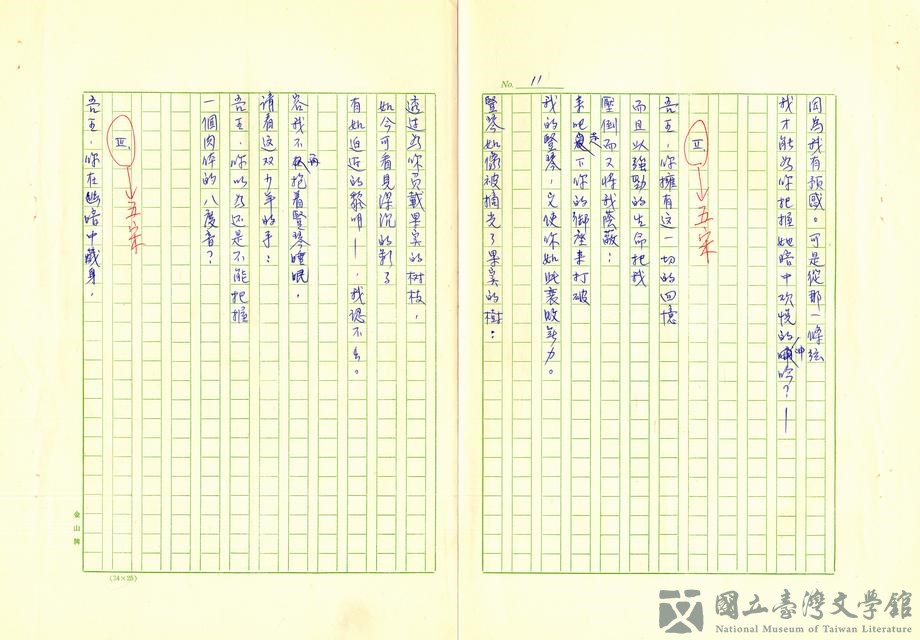 No. 11
因為我有預感。可是從那一條弦
我才能為你把握她暗中欢愉的呻吟？—
II. → 五宋
吾王，你擁有這一切的回憶
而且以強勁的生命把我
壓倒而又將我蔭蔽：
來吧走下你的御座來打破
我的豎琴，它使你如此衰敗無力。
豎琴如像被摘光了果实的樹：
透过為你負載果实的树枝，
如今可看見深沉的對了
有如迫近的黎明—，我認不出。
容我不再抱着豎琴睡眠，
請看這双少年的手：
吾王，你以為还是不能把握
一個肉体的八度音？
III. → 五宋
吾王，你在幽暗中藏身，
金山牌
(24×25)
國立臺灣文學館
National Museum of Taiwan Literature